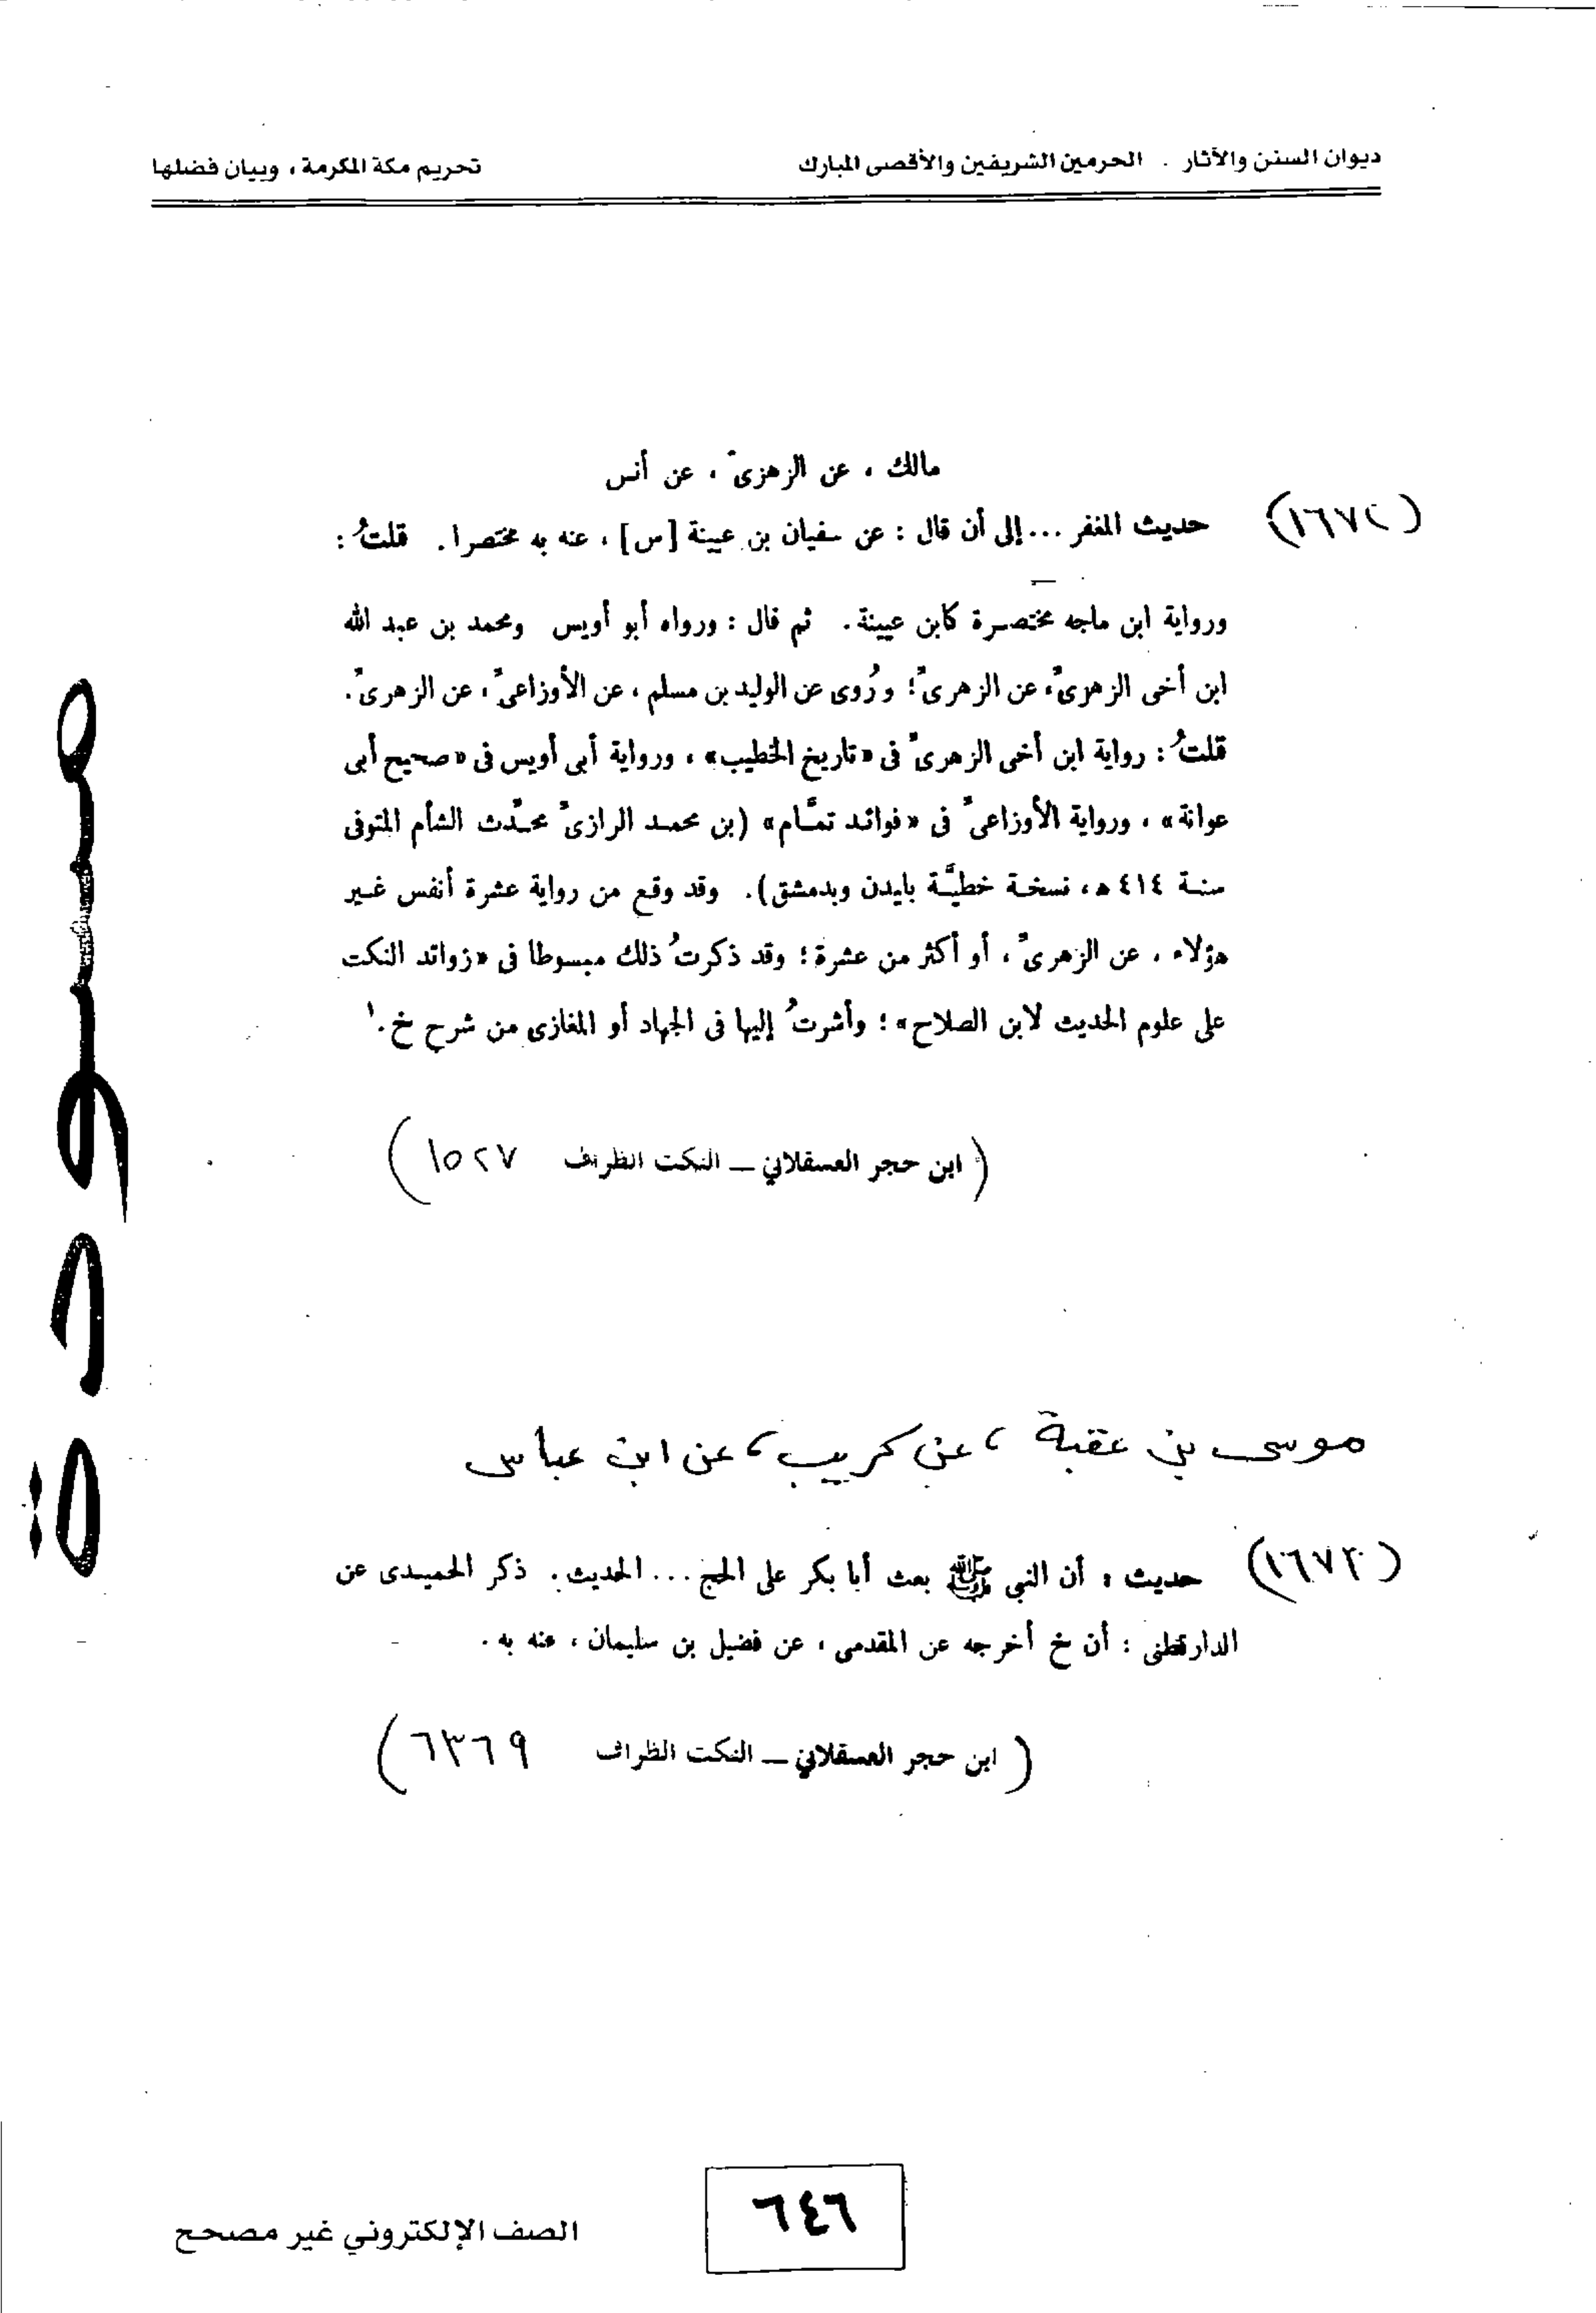 ديوان السنن والآثار . الحرمين الشريفين والأقصى المبارك
تحريم مكة المكرمة ، وبيان فضلها
مالك ، عن الزهرىّ ، عن أنس
(١٦٧٢) حديث المغفر ... إلى أن قال : عن سفيان بن عيينة [س] ، عنه به مختصرا . قلتُ :
ورواية ابن ماجه مختصرة كابن عيينة . ثم قال : ورواه أبو أويس ومحمد بن عبد الله
ابن أخى الزهرىّ، عن الزهرىّ؛ ورُوى عن الوليد بن مسلم ، عن الأوزاعىّ ، عن الزهرىّ .
قلتُ : رواية ابن أخى الزهرىّ فى «تاريخ الخطيب» ، ورواية أبى أويس فى «صحيح أبى
عوانة» ، ورواية الأوزاعىّ فى «فوائد تمَّام» (بن محمد الرازىّ محدّث الشأم المتوفى
سنة ٤١٤ هـ، نسخة خطيَّة بايدن وبدمشق) . وقد وقع من رواية عشرة أنفس غير
هؤلاء ، عن الزهرىّ ، أو أكثر من عشرة ؛ وقد ذكرتُ ذلك مبسوطا فى «زوائد النكت
على علوم الحديث لابن الصلاح» ؛ وأشرتُ إليها فى الجهاد أو المغازى من شرح خ .١
(ابن حجر العسقلاني – النكت الظراف ١٥٢٧)
موسى بن عقبة ، عن كريب ، عن ابن عباس
(١٦٧٣) حديث : أن النبي ﷺ بعث أبا بكر على الحج ... الحديث . ذكر الحميدى عن
الدارقطنى : أن خ أخرجه عن المقدمى ، عن فضيل بن سليمان ، عنه به .
(ابن حجر العسقلاني – النكت الظراف ٦٣٦٩)
مسودة
٦٤٦
الصف الإلكتروني غير مصحح